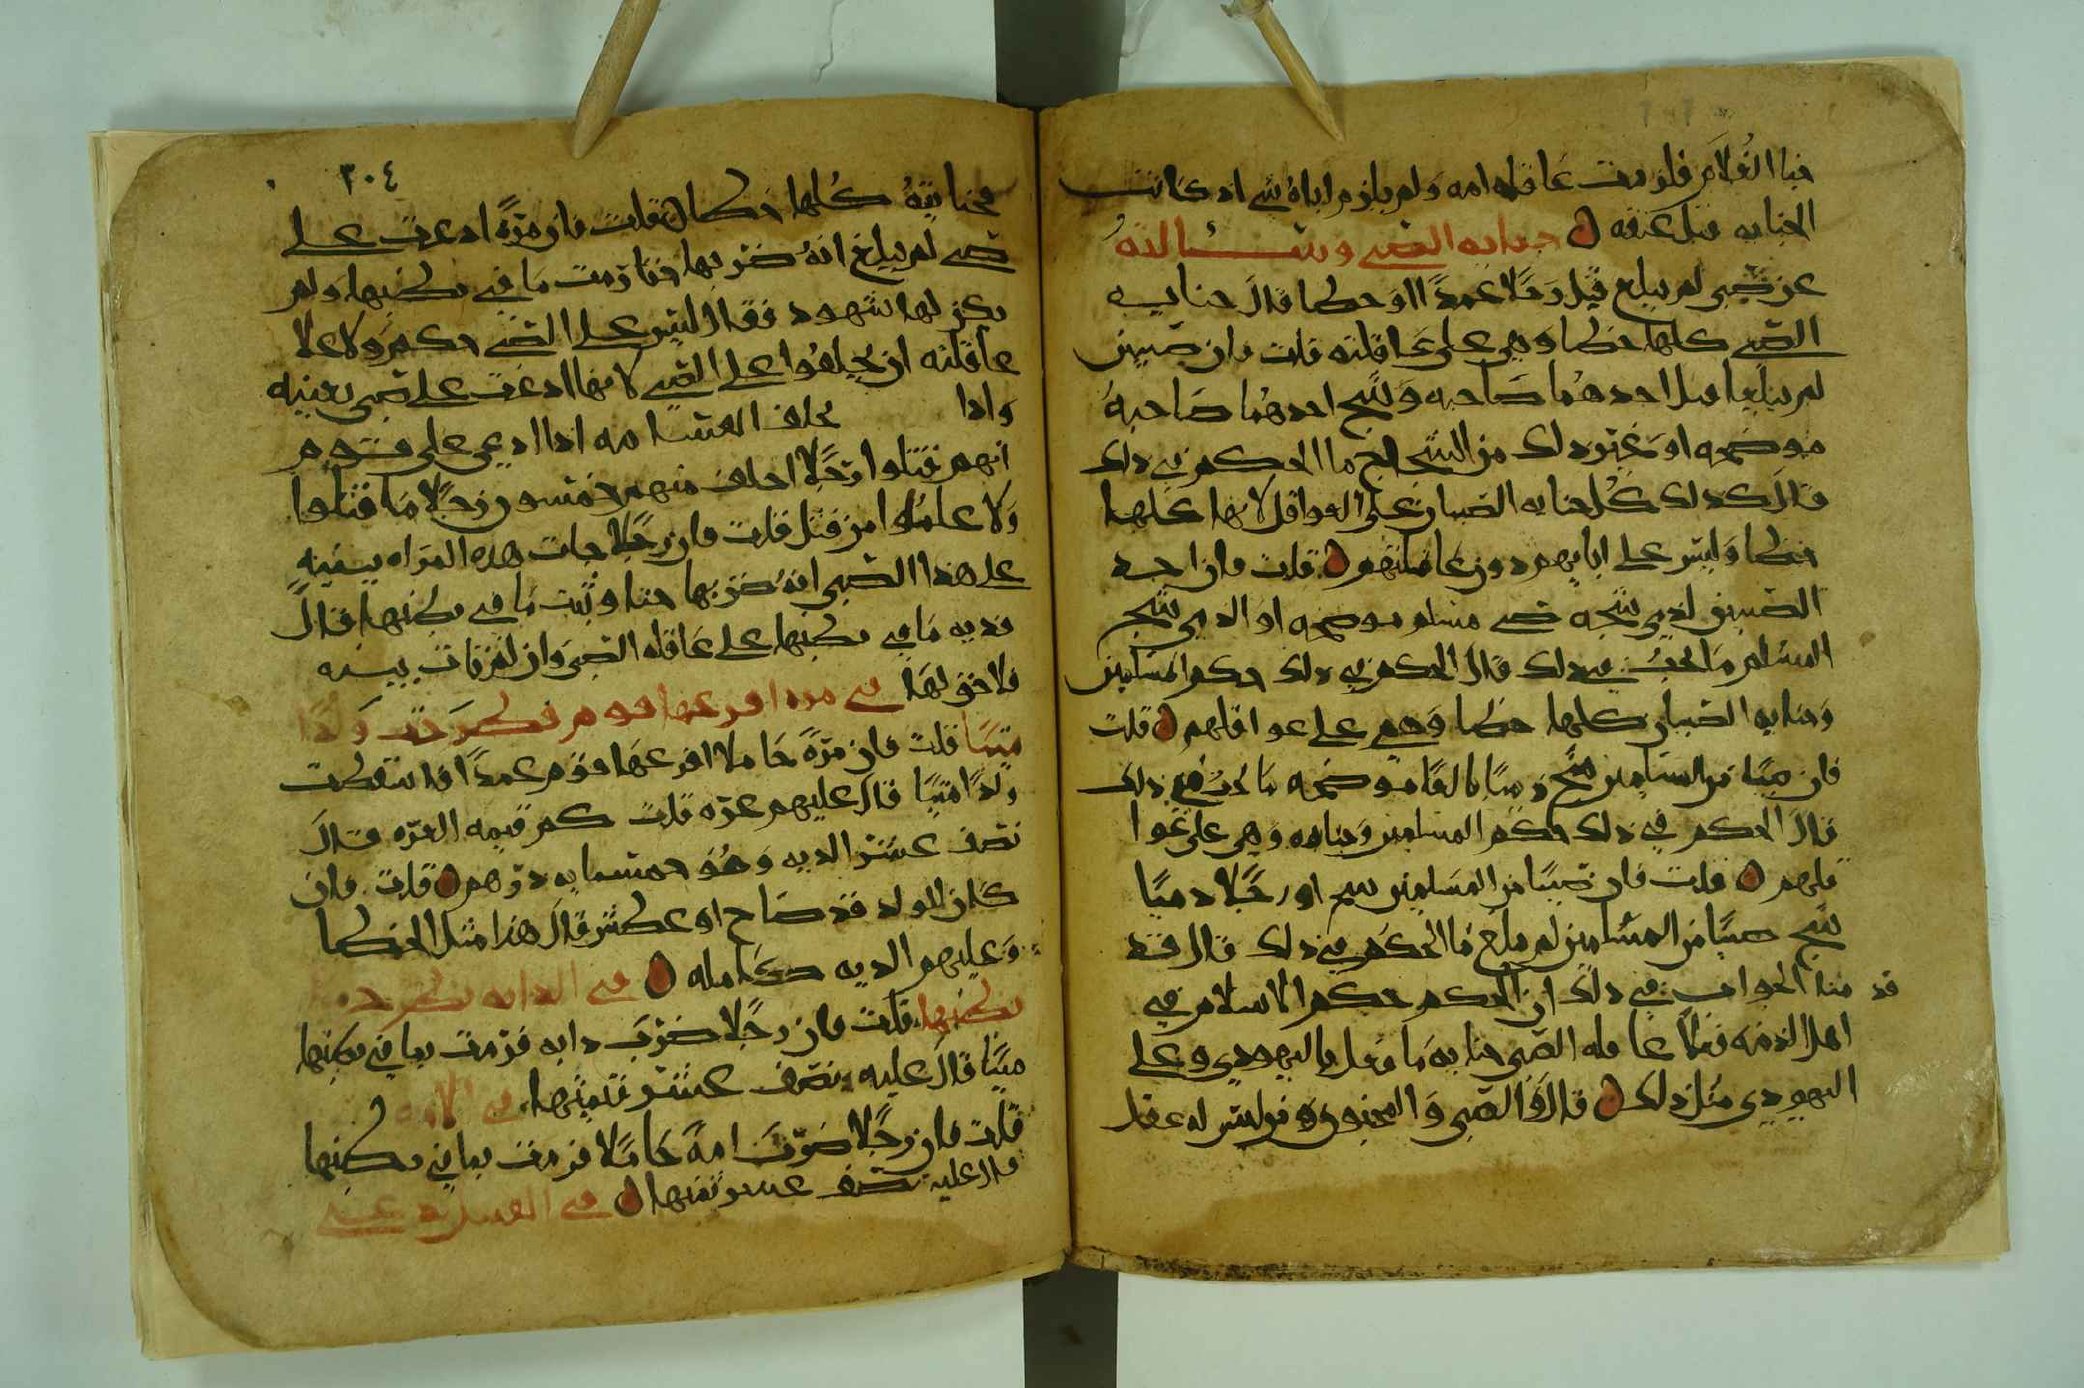 خبا الغلام فلزمت عاقله امه ولم يلزم اباه شي اذ كانت
الجنايه قبل عتقه جنايه الصبي وسالته
عن صبي لم يبلغ قتل رجلا عمدا او خطا قال جنايه
الصبي كلها خطا وهي على عاقلته قلت فان صبيين
لم يبلغا قتل احدهما صاحبه وشج احدهما صاحبه
موضحه او غير ذلك من الشجاج ما الحكم في ذلك
قال كذلك كل جنايه الصبيان على العواقل لانها كلها
خطا وليس على ابايهم دون عاقلتهم قلت فان احد
الصبيين لذمي شجه صبي مسلم موضحه او الذمي شج
المسلم ما يجب في ذلك قال الحكم في ذلك حكم المسلمين
وجنايه الصبيان كلها خطا وهي على عواقلهم قلت
فان صبيا من المسلمين شج ذميا بالغا موضحه ما يجب في ذلك
قال الحكم في ذلك حكم المسلمين وجنايه وهي على عوا
قلهم قلت فان صبيا من المسلمين شج او رجلا ذميا
شج صبيا من المسلمين لم يبلغ ما الحكم في ذلك قال قد
قد منا الجواب في ذلك ان الحكم حكم الاسلام في
اهل الذمه فعلا عاقله الصبي جنايه ما فعل باليهودي وعلى
اليهودي مثل ذلك قال والصبي والمجنون ومن ليس له عقل
٣٠٤
فجنايته كلها خطا قلت فان مره ادعت على
صبي لم يبلغ انه ضربها حتا رمت ما في بطنها ولم
يكن لها شهود فقال ليس على الصبي حكم ولا علا
عاقلته ان يحلفوا على الصبي لانها ادعت على صبي بعينه
واذا يحلف القسامه اذا ادعي على قوم
انهم قتلوا رجلا احلف منهم خمسون رجلا ما قتلوا
ولا علموا من قتل قلت فان رجلا جات هذه المراه ببينه
على هذا الصبي انه ضربها حتا رميت ما في بطنها قال
فديه ما في بطنها على عاقله الصبي وان لم تات ببينه
فلا حق لها في مره افزعها قوم فطرحت ولدا
ميتا قلت فان مره حاملا افزعها قوم عمدا فاسقطت
ولدا ميتا قال عليهم غره قلت كم قيمه الغره قال
نصف عشر الديه وهو خمسمايه درهم قلت فان
كان المولد قد صاح او عطس قال هذا مثل الخطا
وعليهم الديه كامله في الدابه يطرح ما في
بطنها قلت فان رجلا ضرب دابه فرمت بما في بطنها
ميتا قال عليه نصف عشر قيمتها في الامه
قلت فان رجلا ضرب امة حاملا فرمت بما في بطنها
قال عليه نصف عشر ثمنها في القتيل يدعي